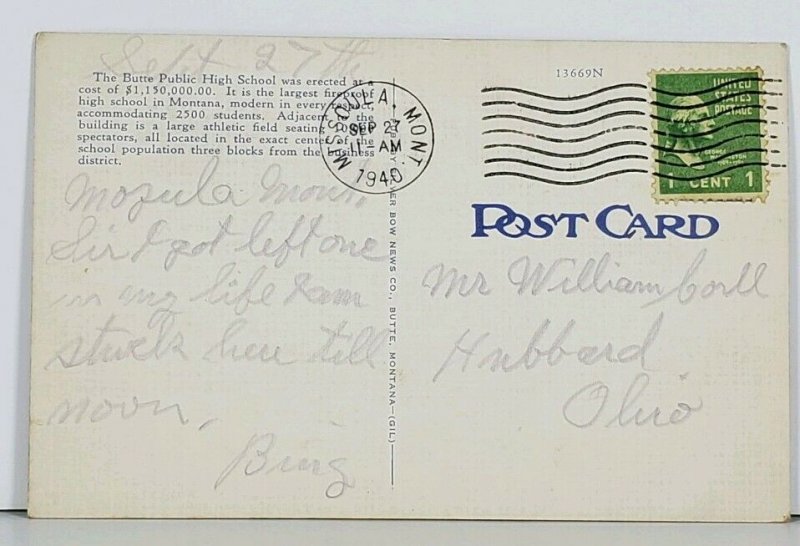 Sept. 27th
The Butte Public High School was erected at a
cost of $1,150,000.00. It is the largest fireproof
high school in Montana, modern in every respect,
accommodating 2500 students. Adjacent to the
building is a large athletic field seating 10,000
spectators, all located in the exact center of the
school population three blocks from the business
district.
Mozula Mont.
Sir I got left one
in my life I am
stuck here till
noon,
Bing
BOW NEWS CO., BUTTE, MONTANA—(GIL)
MISSOULA, MONT.
SEP 27
11 - AM
1940
13669N
UNITED
STATES
POSTAGE
GEORGE
WASHINGTON
1 CENT 1
POST CARD
Mr William Coll
Hubbard
Ohio